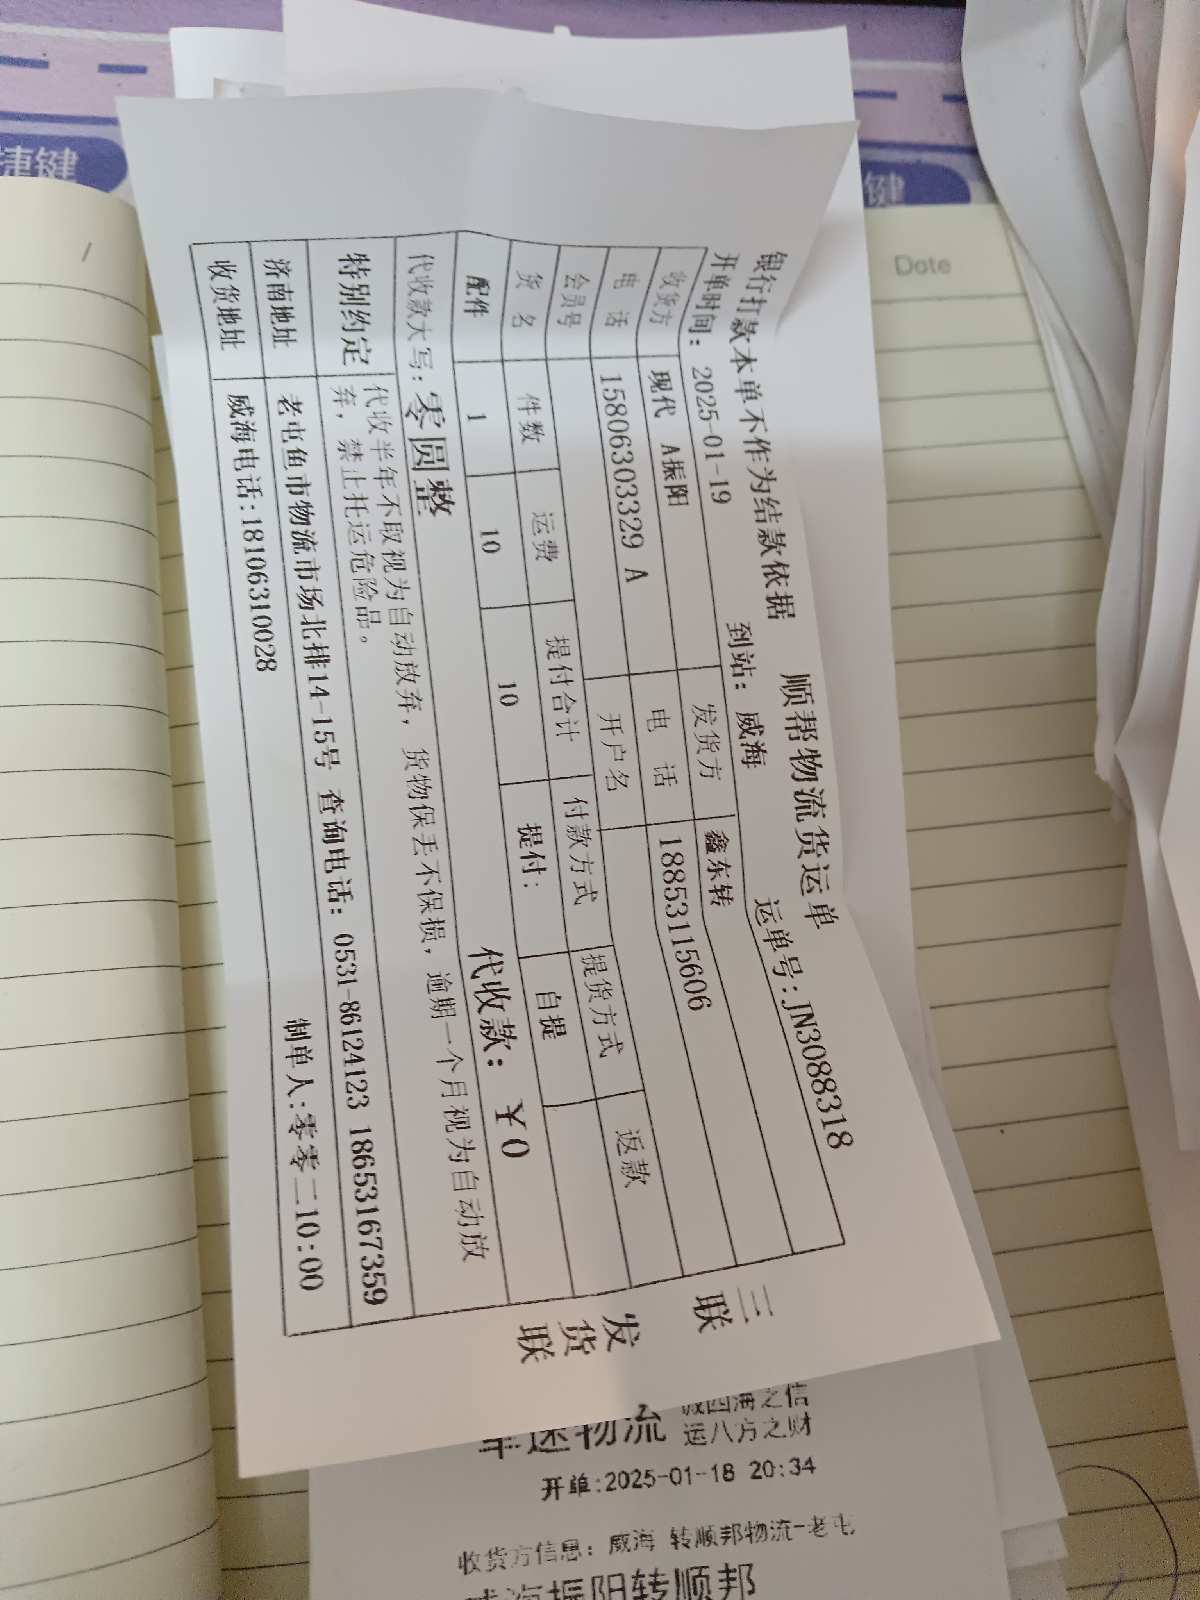 银行打款本单不作为结款依据 顺帮物流货运单
开单时间：2025-01-19 到站：威海 运单号:JN3088318
收货方 现代 A振阳 发货方 鑫东转
电 话 15806303329 A 电 话 18853115606
会员号 开户名
货 名 件数 运费 提付合计 付款方式 提货方式 返款
配件 1 10 10 提付: 自提
代收款大写:零圆整 代收款：￥0
特别约定 代收半年不取视为自动放弃，货物保丢不保损，逾期一个月视为自动放
弃，禁止托运危险品。
济南地址 老屯鱼市物流市场北排14-15号 查询电话：0531-86124123 18653167359
收货地址 威海电话:18106310028 制单人:零零二10:00
三联
发货联
速物流
诚四海之信
运八方之财
开单:2025-01-18 20:34
收货方信息：威海 转顺邦物流-老屯
海振阳转顺邦
捷键
键
Date